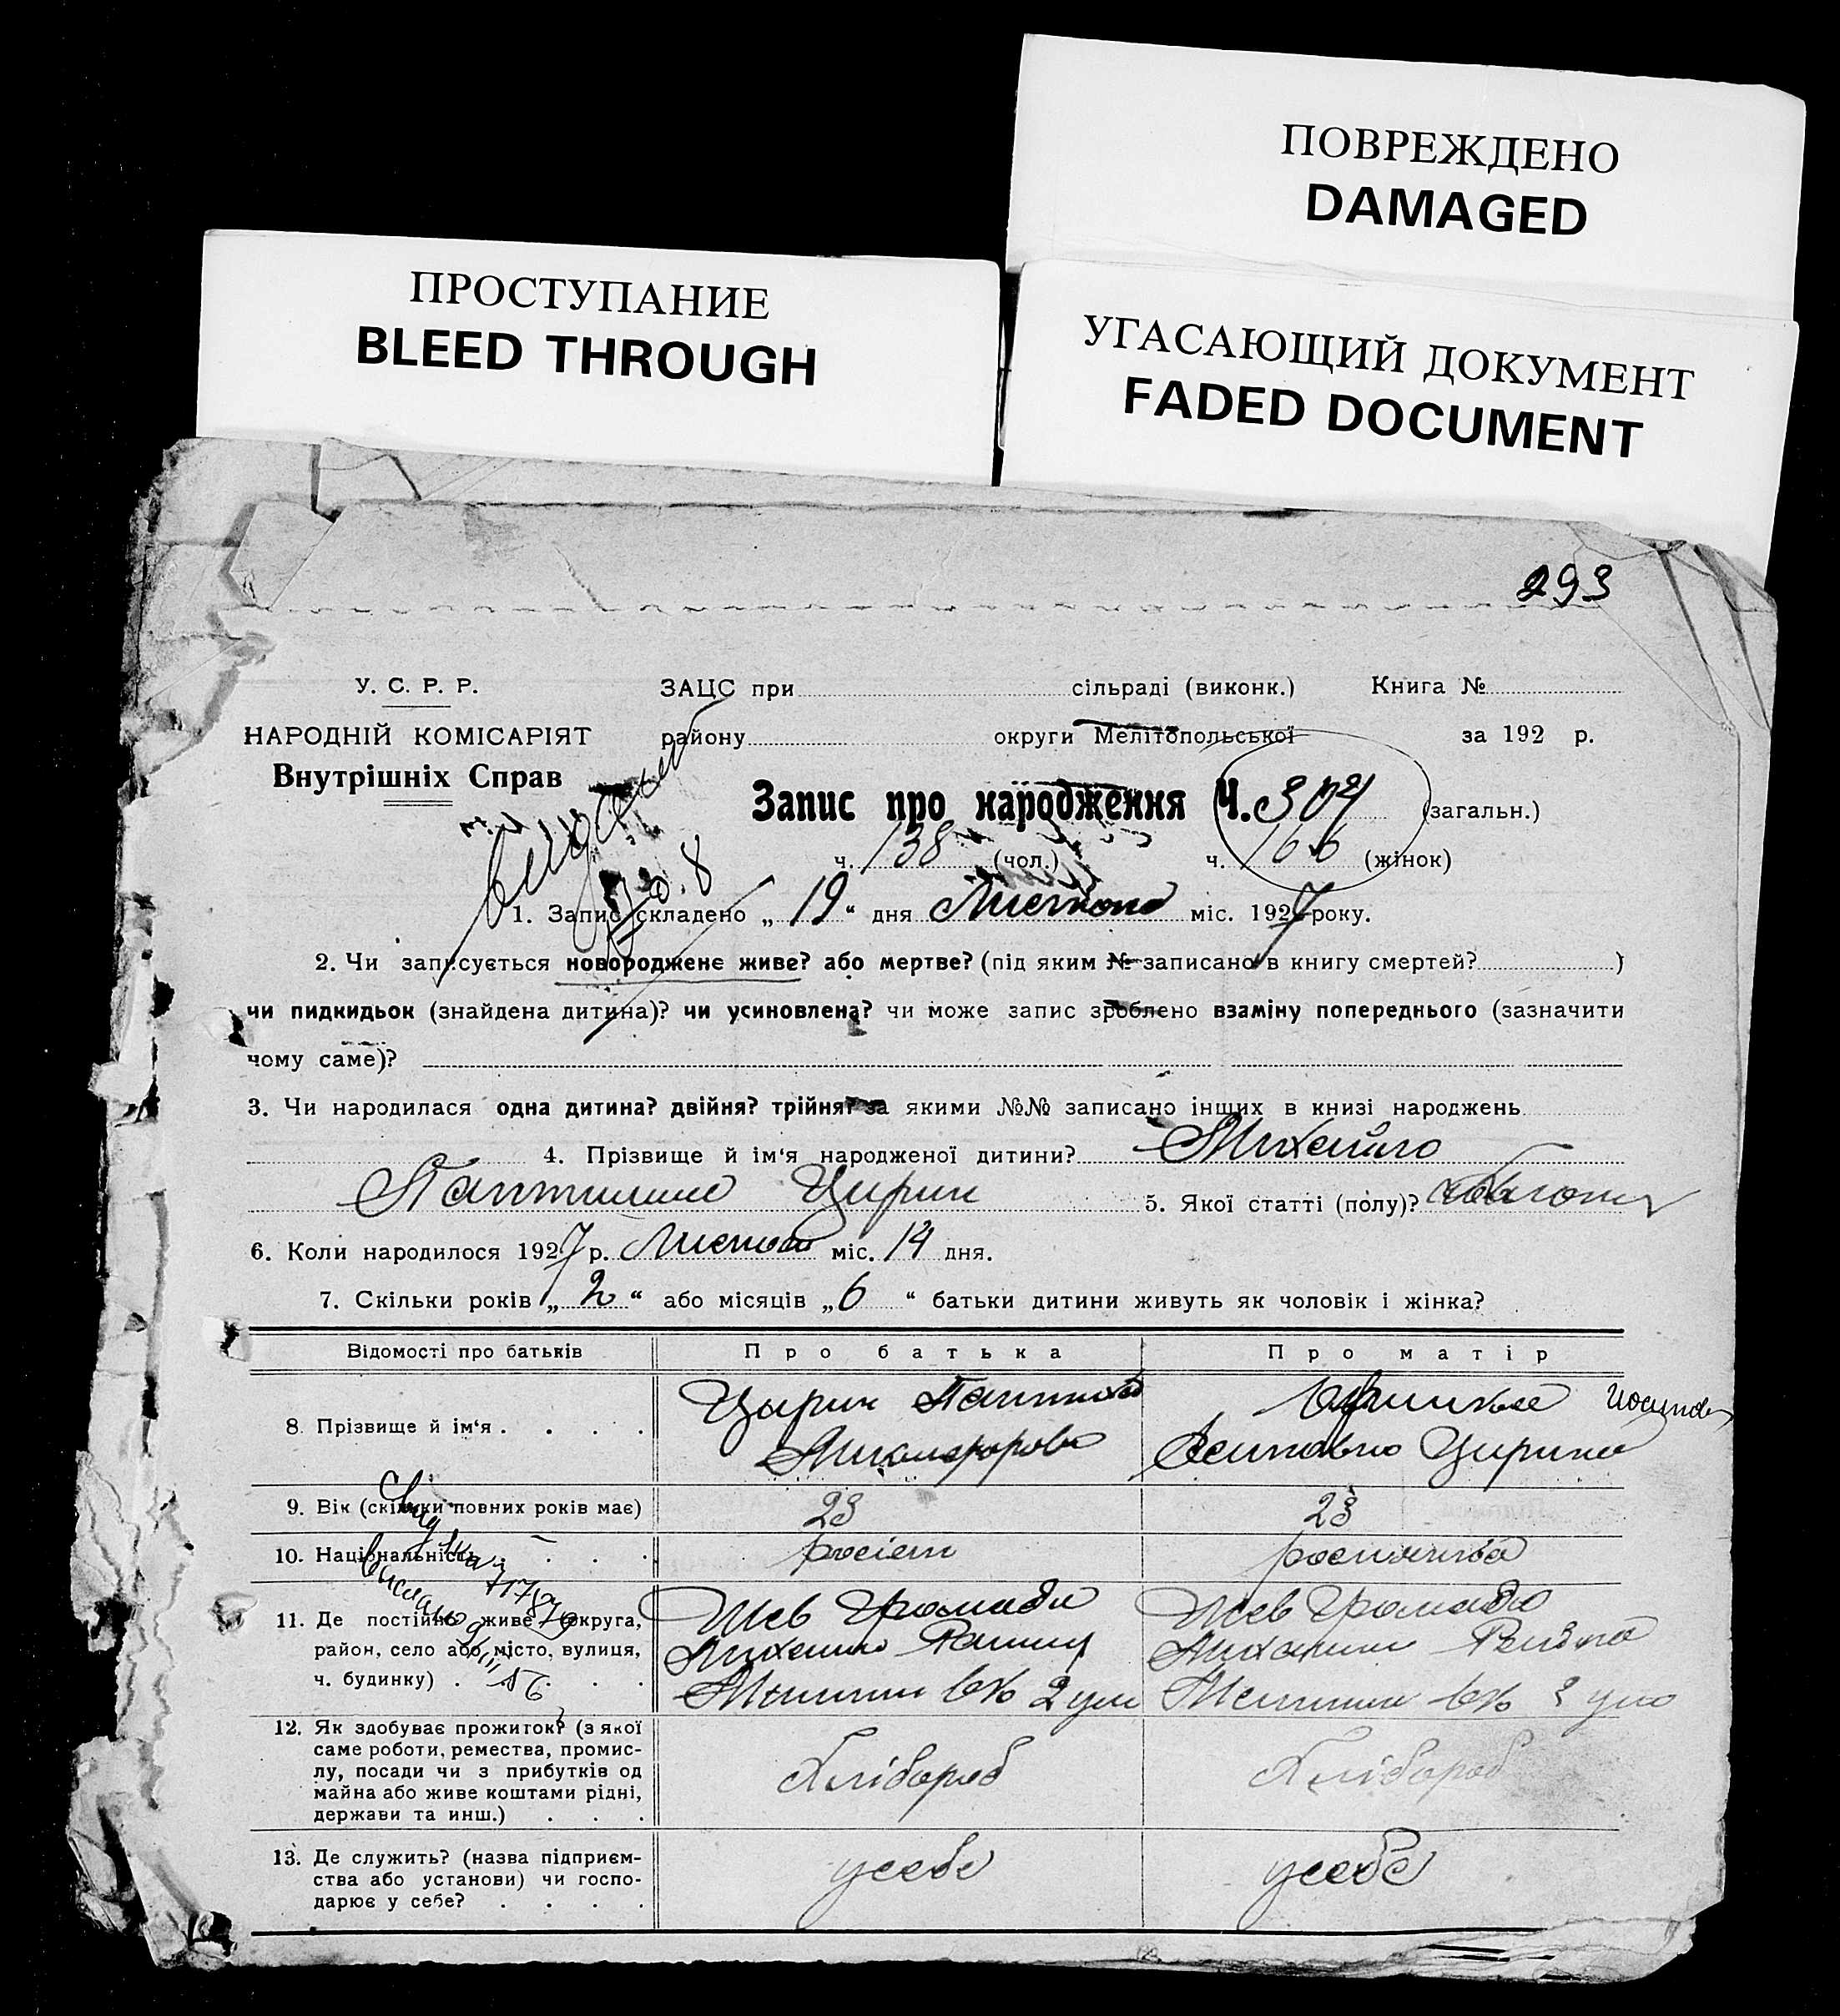 ПОВРЕЖДЕНО
DAMAGED
ПРОСТУПАНИЕ
BLEED THROUGH
УГАСАЮЩИЙ ДОКУМЕНТ
FADED DOCUMENT
293
У. С. Р. Р.
НАРОДНІЙ КОМІСАРІЯТ
Внутрішніх Справ
ЗАЦС при сільраді (виконк.) Книга №
району округи Мелітопольської за 192 р.
Запис про народження Ч. 304 (загальн.)
ч. 138 (чол.) ч. 166 (жінок)
1. Запис складено „ 19 “ дня Листопад міс. 1927 року.
2. Чи записується новороджене живе? або мертве? (під яким № записано в книгу смертей? )
чи пидкидьок (знайдена дитина)? чи усиновлена? чи може запис зроблено взаміну попереднього (зазначити
чому саме)?
3. Чи народилася одна дитина? двійня? трійня? за якими №№ записано інших в книзі народжень
4. Прізвище й ім'я народженої дитини? Михайло
Цирин 5. Якої статті (полу)?
6. Коли народилося 1927 р. Листопад міс. 14 дня.
7. Скільки років „ 2 “ або місяців „ 6 “ батьки дитини живуть як чоловік і жінка?
Відомості про батьків Про батька Про матір
8. Прізвище й ім'я . . . . Цырин
Никифоров Цирина
9. Вік (скільки повних років має) 23 23
10. Національність . . . . росіян росиянка
11. Де постійно живе? (округа,
район, село або місто, вулиця,
ч. будинку) . . . .
Громади
Громади
12. Як здобуває прожиток? (з якої
саме роботи, ремества, промис-
лу, посади чи з прибутків од
майна або живе коштами рідні,
держави та инш.) . . .
Хлібороб Хлібороб
13. Де служить? (назва підприєм-
ства або установи) чи госпо-
дарює у себе? . . . .
усебе усебе